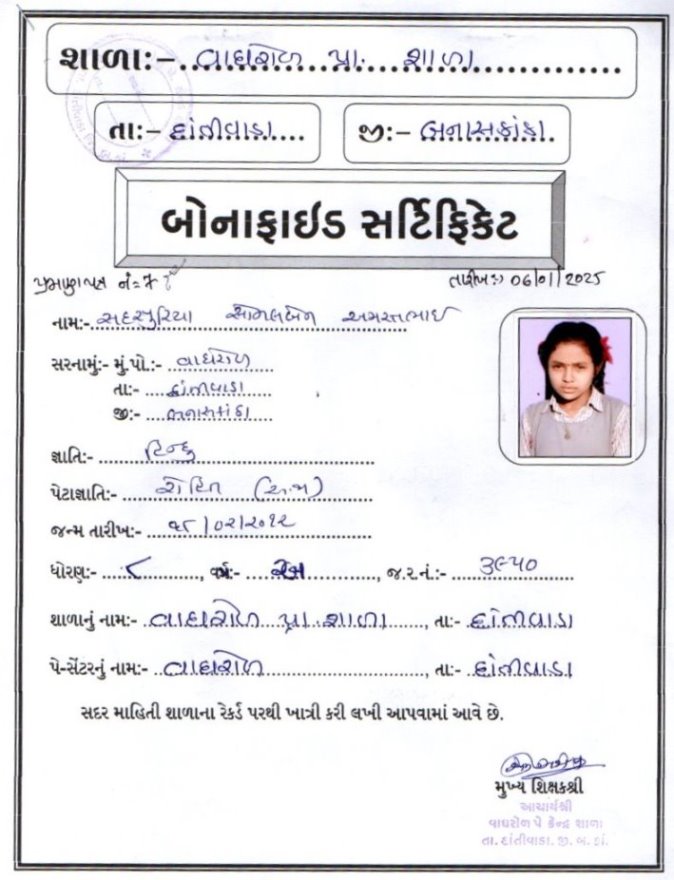 શાળા:- વાઘરોળ પ્રા. શાળા
તા:- દાંતીવાડા
જી:- બનાસકાંઠા.
બોનાફાઈડ સર્ટિફિકેટ
પ્રમાણપત્ર નં:- 7
તારીખ:- 06/01/2025
નામ:- સદસુરિયા અમરતભાઈ
સરનામું:- મું.પો.:- વાઘરોળ
તા:- દાંતીવાડા
જી:- બનાસકાંઠા
જ્ઞાતિ:- હિન્દુ
પેટાજ્ઞાતિ:- રોહિત (અ.જા)
જન્મ તારીખ:- /૦૨/૨૦૧૨
ધોરણ:- ૮, વર્ગ:-, જ.ર.નં.:- ૩૯૫૦
શાળાનું નામ:- વાઘરોળ પ્રા. શાળા, તા:- દાંતીવાડા
પે-સેંટરનું નામ:- વાઘરોળ, તા:- દાંતીવાડા
સદર માહિતી શાળાના રેકર્ડ પરથી ખાત્રી કરી લખી આપવામાં આવે છે.
મુખ્ય શિક્ષકશ્રી
આચાર્યશ્રી
વાઘરોળ પે કેન્દ્ર શાળા
તા. દાંતીવાડા. જી. બ. કાં.